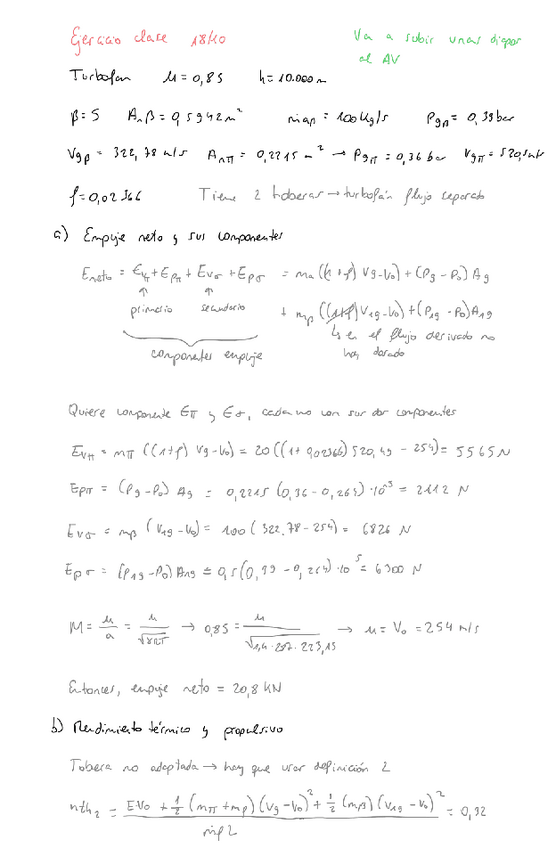 Ejercicio clase 18/10
Va a subir unas diapos
al AV
Turbofan M = 0,85 h = 10.000 m
β = 5 Anβ = 0,5942 m² ṁap = 100 kg/s Pgβ = 0,39 bar
Vgβ = 322,78 m/s Aπ = 0,2215 m² → Pgπ = 0,36 bar Vgπ = 520,
f = 0,02366 Tiene 2 toberas → turbofán flujo separado
a) Empuje neto y sus componentes
Eneto = Evπ + Epπ + Evσ + Epσ = ma((1+f) Vg - V0) + (Pg - P0) Ag
primario secundario + mp((1+f) V1g - V0) + (P1g - P0) A1g
↳ en el flujo derivado no
hay dosado
componentes empuje
Quiere componente Eπ y Eσ, cada uno con sus dos componentes
Evπ = mπ ((1+f) Vg - V0) = 20((1 + 0,02366) 520,49 - 254) = 5565 N
Epπ = (Pg - P0) Ag = 0,2215 (0,36 - 0,264) · 10⁵ = 2112 N
Evσ = mβ (V1g - V0) = 100 (322,78 - 254) = 6826 N
Epσ = (P1g - P0) A1g = 0,5(0,39 - 0,264) · 10⁵ = 6300 N
M = u/a = u/√γRT → 0,85 = u/√1,4 · 287 · 223,15 → u = V0 = 254 m/s
Entonces, empuje neto = 20,8 kN
b) Rendimiento térmico y propulsivo
Tobera no adaptada → hay que usar definición 2
ηth2 = EV0 + 1/2 (mπ + mp) (Vg - V0)² + 1/2 (mβ) (V1g - V0)² = 0,32
ṁf L